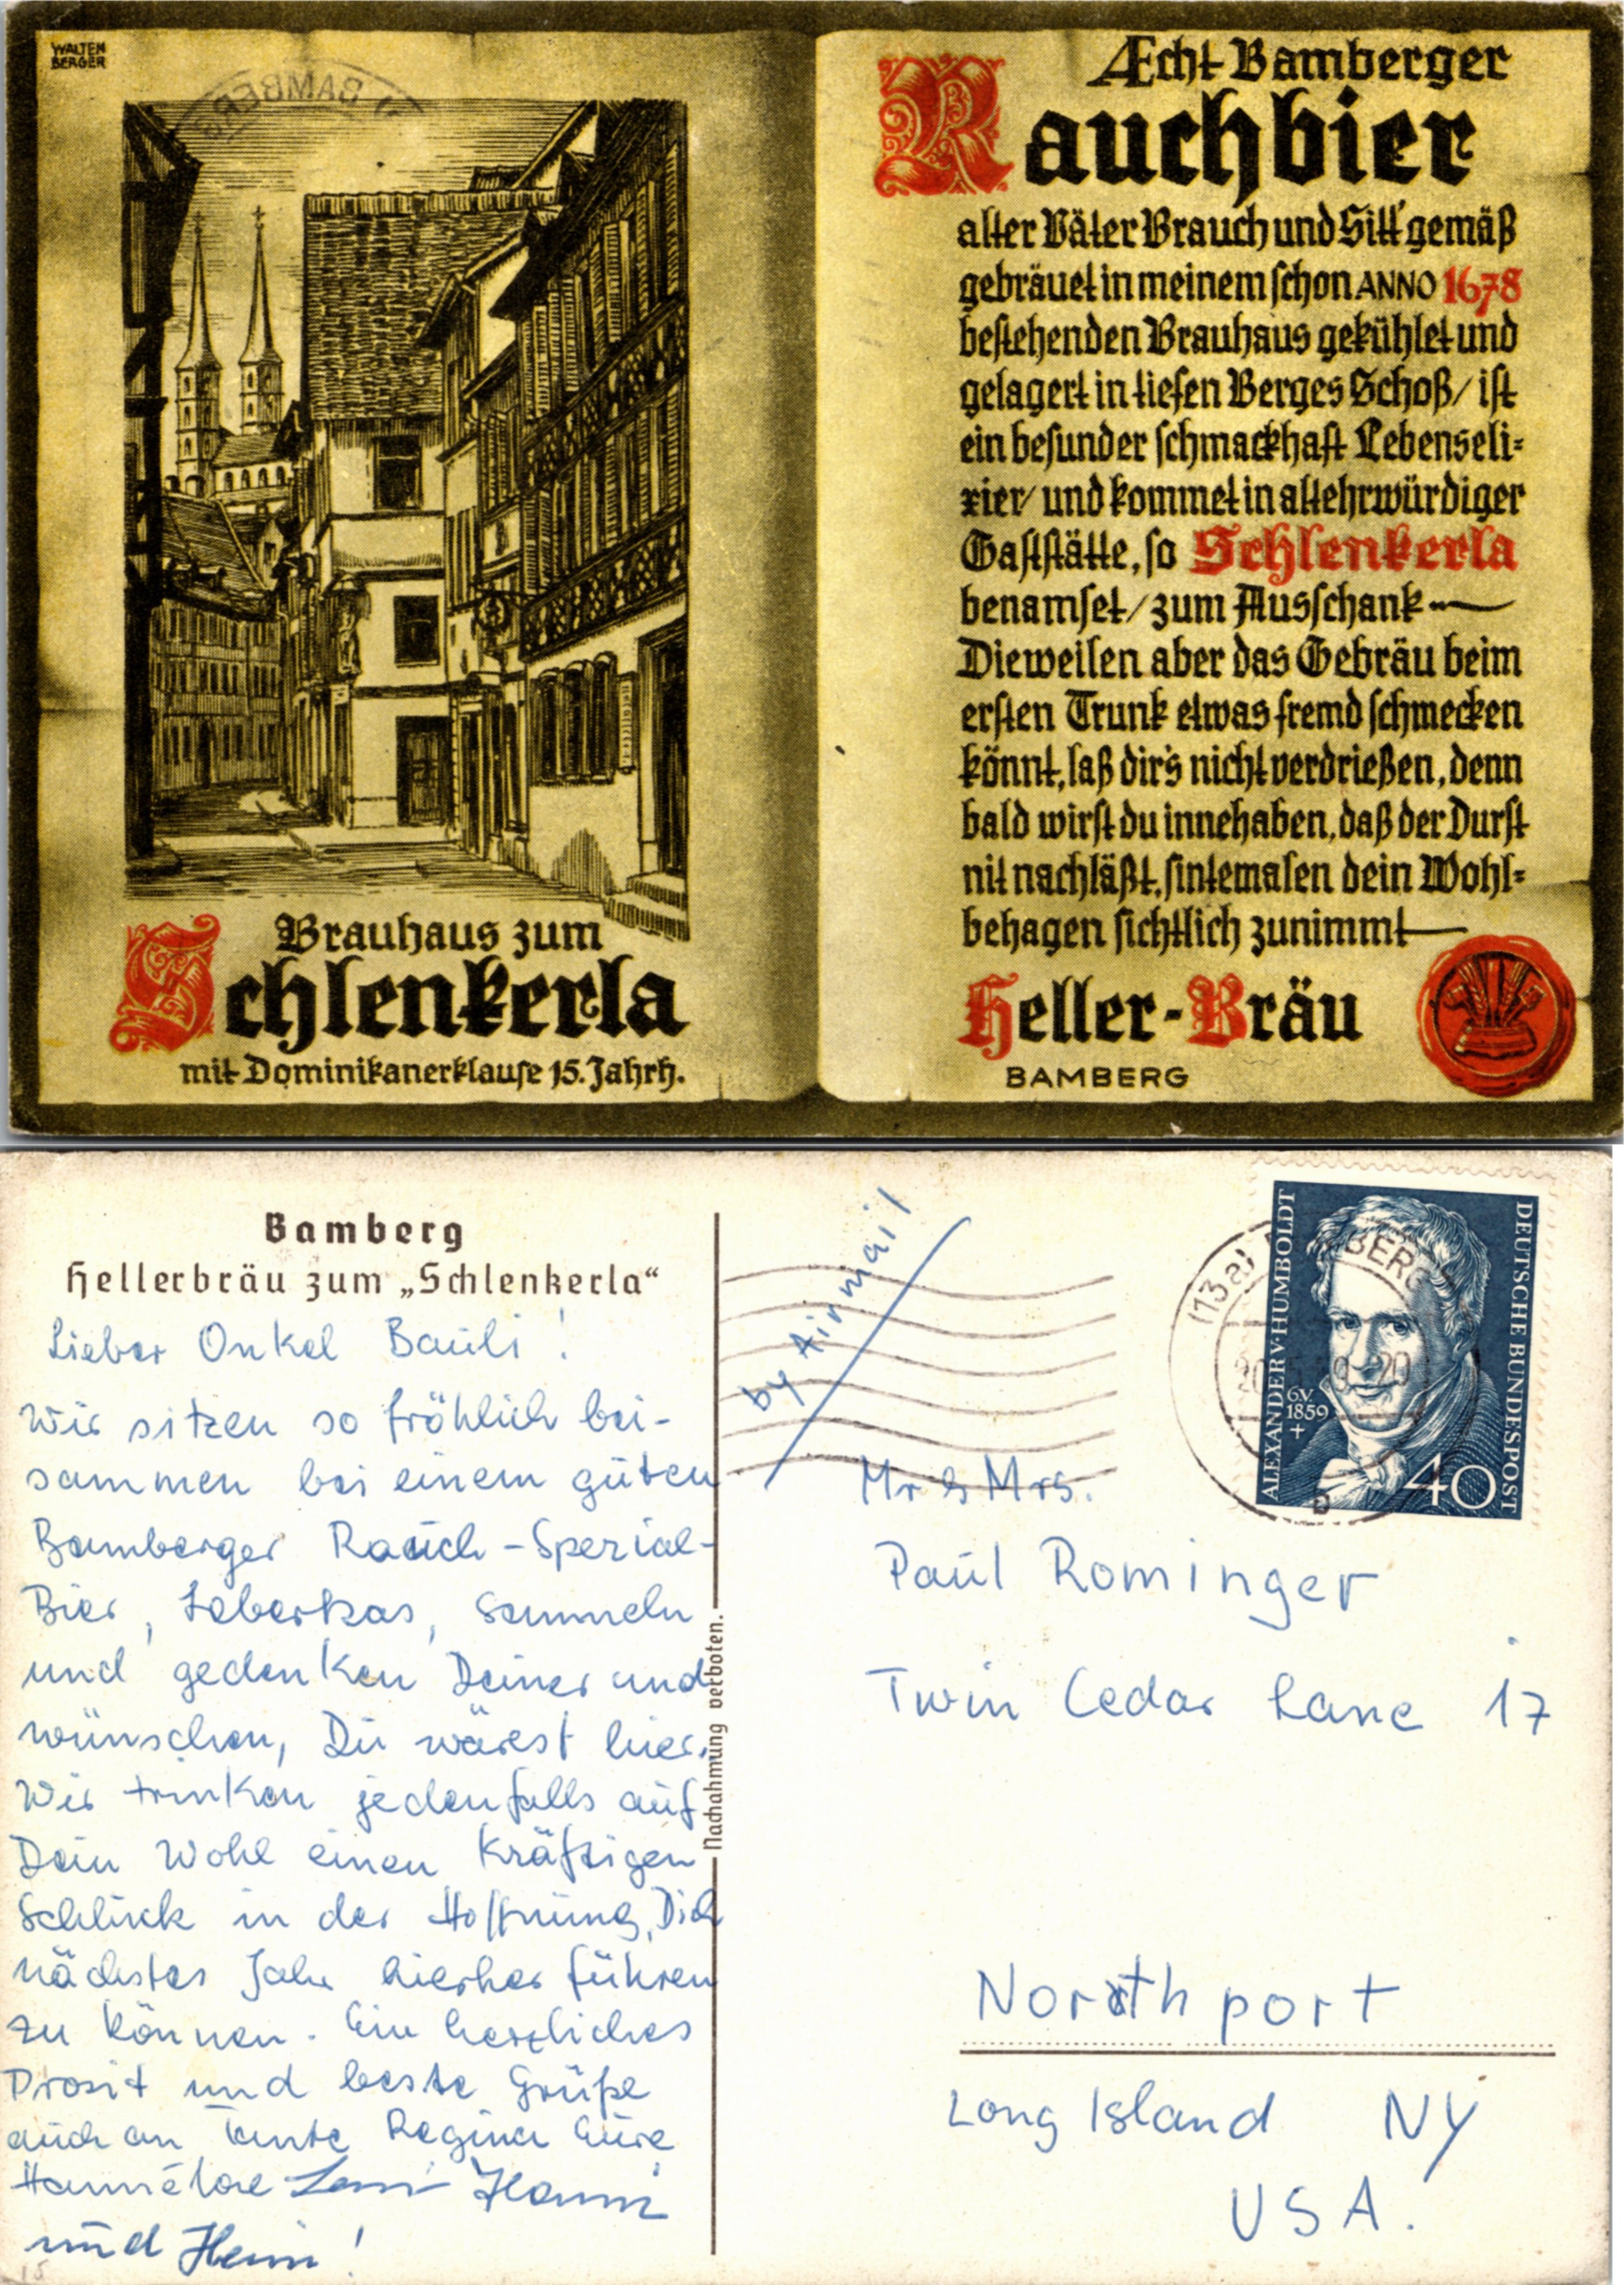 WALTEN
BERGER
BAMBER
Brauhaus zum
Schlenkerla
mit Dominikanerklause 15. Jahrh.
Æcht Bamberger
Rauchbier
alter Väter Brauch und Sitt' gemäß
gebräuet in meinem schon ANNO 1678
bestehenden Brauhaus gekühlet und
gelagert in tiefen Berges Schoß/ ist
ein besunder schmackhaft Lebenseli=
xier/ und kommet in altehrwürdiger
Gaststätte, so Schlenkerla
benamset/ zum Ausschank
Dieweilen aber das Gebräu beim
ersten Trunk etwas fremd schmecken
könnt, laß dir's nicht verdrießen, denn
bald wirst du innehaben, daß der Durst
nit nachläßt, sintemalen dein Wohl=
behagen sichtlich zunimmt
Heller-Bräu
BAMBERG
Bamberg
Hellerbräu zum „Schlenkerla“
Lieber Onkel Bauli!
Wir sitzen so fröhlich bei-
sammen bei einem guten
Bamberger Rauch-Spezial-
Bier, Leberkas, Semmeln
und gedenken Deiner und
wünschen, Du wärest hier.
Wir trinken jedenfalls auf
Dein Wohl einen kräftigen
Schluck in der Hoffnung, Dich
nächstes Jahr hierher führen
zu können. Ein herzliches
Prosit und beste Grüße
auch an Tante Regina Eure
Hannelore Leni Hanni
und Heini!
Nachahmung verboten.
by Airmail
(13a) BAMBERG
20
b
ALEXANDER V. HUMBOLDT
6.V.
1859
+
DEUTSCHE BUNDESPOST
40
Mr & Mrs.
Paul Rominger
Twin Cedar Lane 17
Northport
Long Island NY
USA.
15